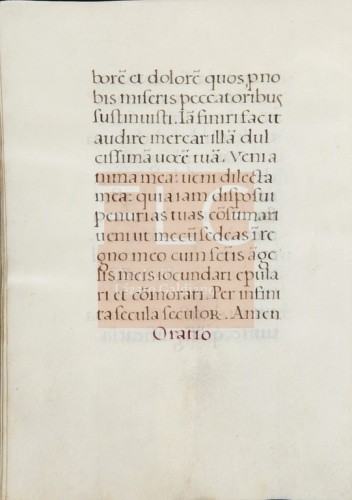 borē et dolorē quos p̱ no
bis miseris peccatoribus
sustinuisti. Iā finiri fac it
audire mercar illā dul
cissimā uocē tuā. Veni a
nima mea: ueni dilecta
mea: quia iam disposui
penurias tuas cōsumari
ueni ut mecū sedeas ī re
gno meo cum sctīs āge
lis meis iocundari epula
ri et cōmorari. Per infini
ta secula seculor. Amen
Oratio